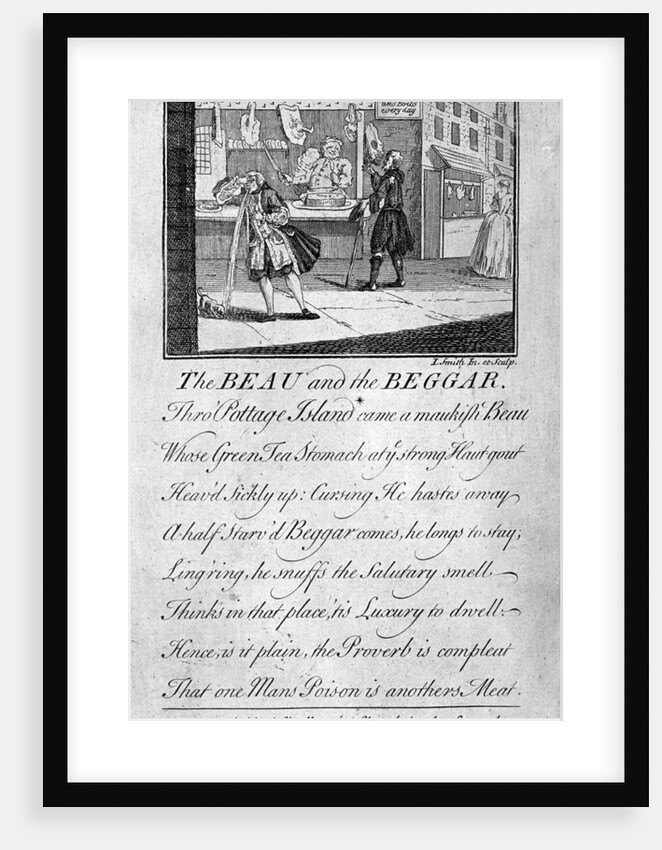 and Boils
every day
I. Smith In. et Sculp.
The BEAU and the BEGGAR.
Thro' Pottage Island * came a maukish Beau
Whose Green Tea Stomach at yͤ strong Haut-gout
Heav'd Sickly up: Cursing He hastes away
A half Starv'd Beggar comes, he longs to stay;
Ling'ring, he snuffs the Salutary smell
Thinks in that place, 'tis Luxury to dwell:
Hence, is it plain, the Proverb is compleat
That one Mans Poison is anothers Meat.